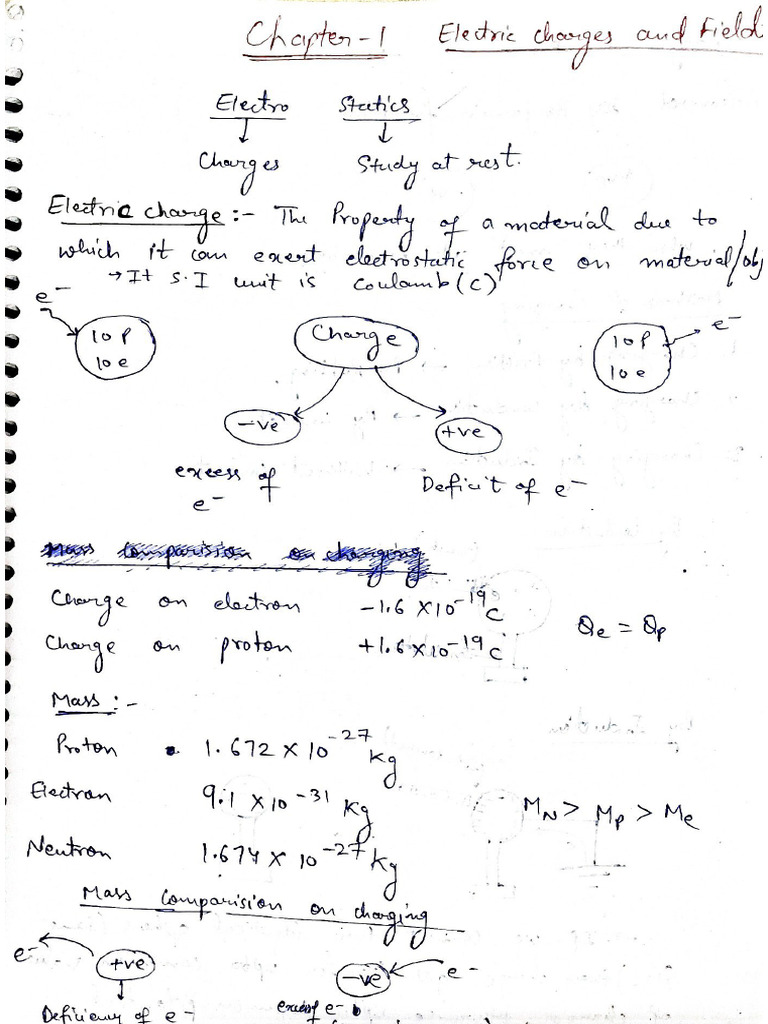 Chapter-1 Electric charges and Field
Electro Statics
Charges Study at rest.
Electric charge :- The Property of a material due to
which it can exert electrostatic force on material/obj
→ It S.I unit is Coulamb (C)
e⁻ Charge e⁻
10 p 10 p
10 e 10 e
-ve +ve
excess of Deficit of e⁻
e⁻
Mass comparision on charging
Charge on electron -1.6 × 10⁻¹⁹ C
Qe = Qp
Charge on proton +1.6 × 10⁻¹⁹ C
Mass :-
Proton 1.672 × 10⁻²⁷ Kg
Electron 9.1 × 10⁻³¹ Kg
MN > Mp > Me
Neutron 1.674 × 10⁻²⁷ Kg
Mass comparision on charging
e⁻ +ve -ve e⁻
Deficiency of e⁻ excess of e⁻